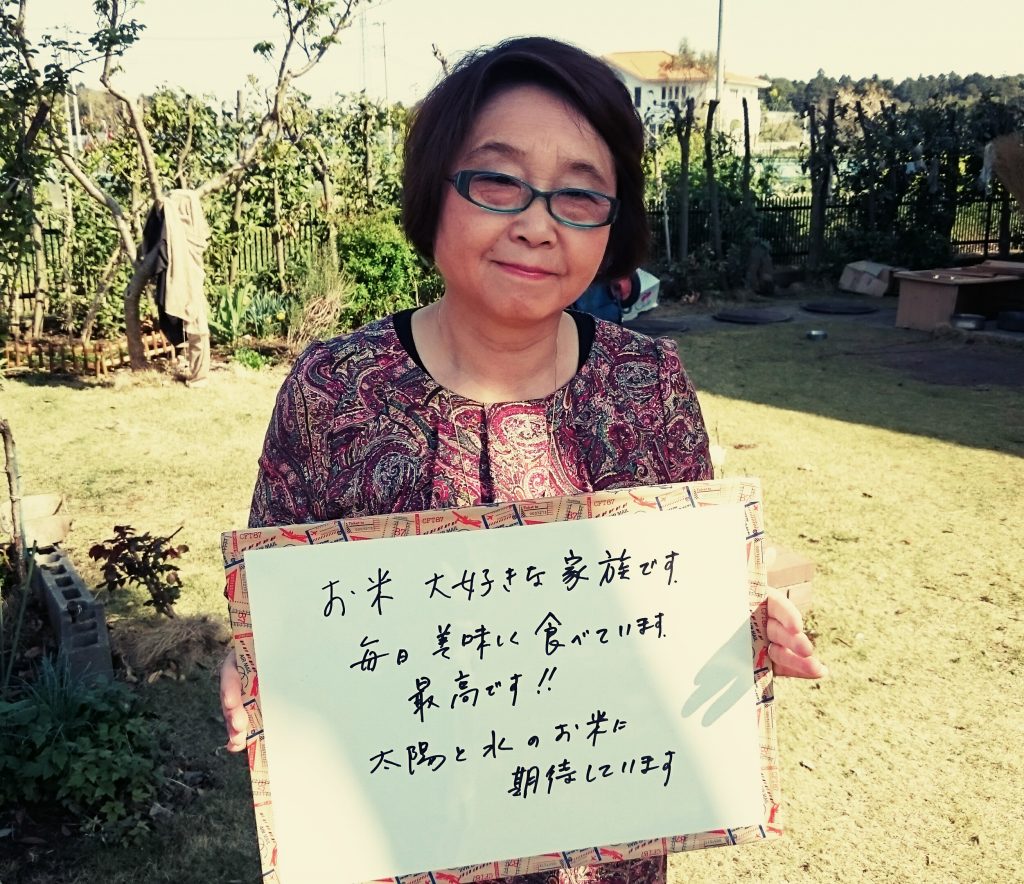 お米 大好きな家族です.
毎日 美味しく食べています.
最高です!!
太陽と水のお米に
期待しています